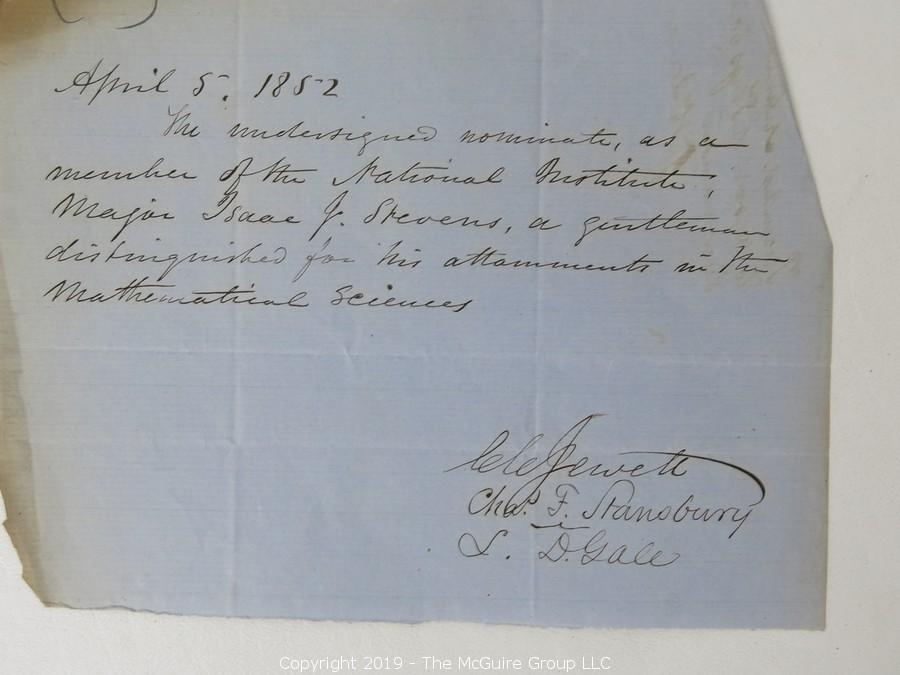 April 5. 1852
The undersigned nominate, as a
member of the National Institute,
Major Isaac J. Stevens, a gentleman
distinguished for his attainments in the
Mathematical Sciences
C C Jewett
Chas. F. Stansbury
L. D. Gale
Copyright 2019 - The McGuire Group LLC